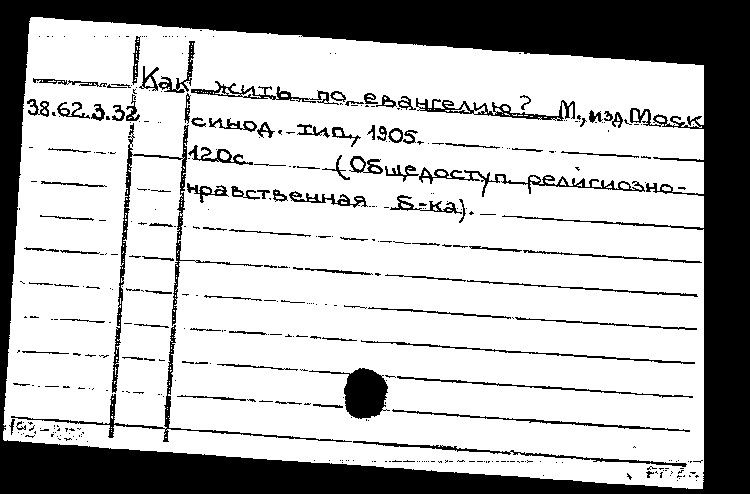 Как жить по евангелию? М., изд. Моск
38.62.3.32
синод. тип., 1905.
120с. (Общедоступ. религиозно-
нравственная б-ка).